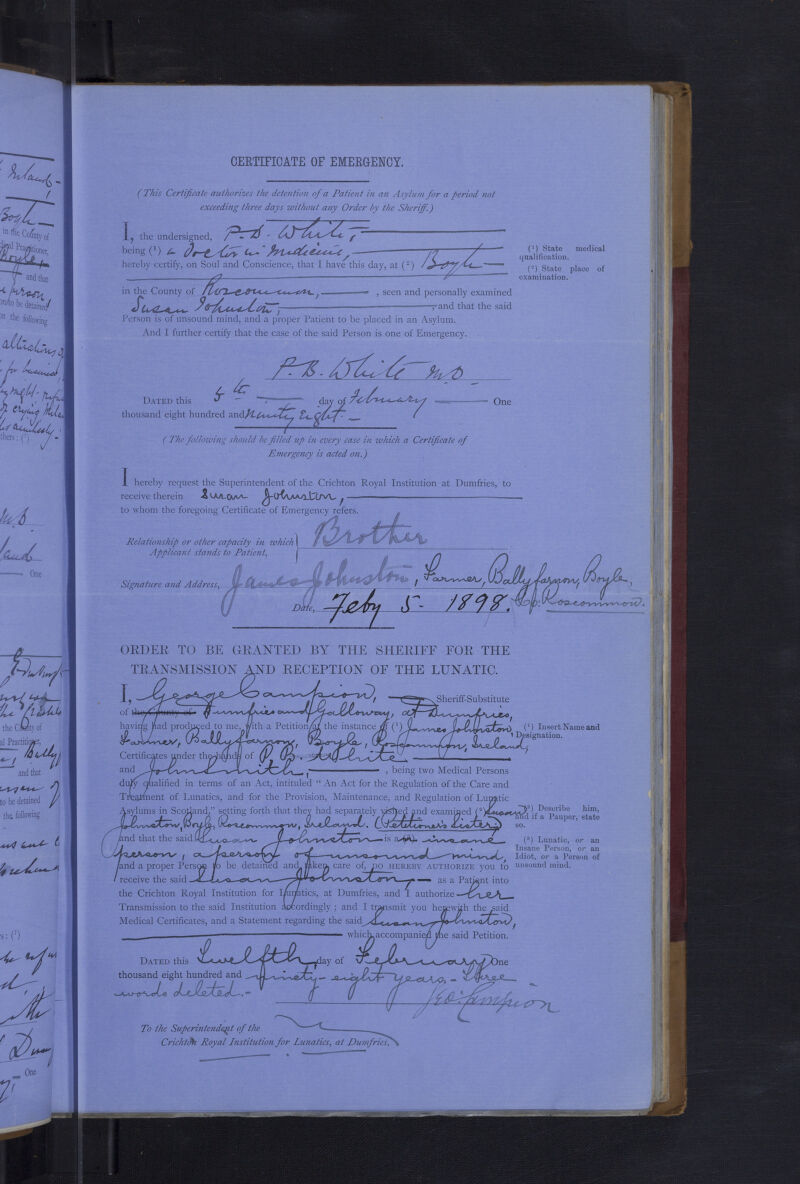 CERTIFICATE OF EMERGENCY.
(This Certificate authorizes the detention of a Patient in an Asylum for a period not
exceeding three days without any Order by the Sheriff.)
I, the undersigned, P. B. White,
being (¹) a Doctor in Medicine,
hereby certify, on Soul and Conscience, that I have this day, at (²) Boyle
in the County of Roscommon, , seen and personally examined
Susan Johnston, and that the said
Person is of unsound mind, and a proper Patient to be placed in an Asylum.
And I further certify that the case of the said Person is one of Emergency.
(¹) State medical
qualification.
(²) State place of
examination.
P. B. White M.D
DATED this 5th day of February One
thousand eight hundred and Ninety Eight.
(The following should be filled up in every case in which a Certificate of
Emergency is acted on.)
I hereby request the Superintendent of the Crichton Royal Institution at Dumfries, to
receive therein Susan Johnston,
to whom the foregoing Certificate of Emergency refers.
Relationship or other capacity in which
Applicant stands to Patient, Brother
Signature and Address, James Johnston, Farmer, Ballyfarnon, Boyle,
Co. Roscommon.
Date, Feby 5 - 1898.
ORDER TO BE GRANTED BY THE SHERIFF FOR THE
TRANSMISSION AND RECEPTION OF THE LUNATIC.
I, George Campion, Sheriff-Substitute
of the County of Dumfries and Galloway, at Dumfries,
having had produced to me, with a Petition at the instance of (¹) James Johnston,
Farmer, Ballyfarnon, Boyle, Roscommon, Ireland,
Certificates under the hands of P. B. White
and John Smith, , being two Medical Persons
duly qualified in terms of an Act, intituled "An Act for the Regulation of the Care and
Treatment of Lunatics, and for the Provision, Maintenance, and Regulation of Lunatic
Asylums in Scotland," setting forth that they had separately visited and examined (²) Susan
Johnston, Boyle, Roscommon, Ireland. (Petitioner's Sister)
and that the said Susan Johnston is an insane
person, a person of unsound mind,
and a proper Person to be detained and taken care of, DO HEREBY AUTHORIZE you to
receive the said Susan Johnston, as a Patient into
the Crichton Royal Institution for Lunatics, at Dumfries, and I authorize her
Transmission to the said Institution accordingly; and I transmit you herewith the said
Medical Certificates, and a Statement regarding the said Susan Johnston,
which accompanied the said Petition.
(¹) Insert Name and
Designation.
(²) Describe him,
and if a Pauper, state
so.
(³) Lunatic, or an
Insane Person, or an
Idiot, or a Person of
unsound mind.
DATED this Twelfth day of February One
thousand eight hundred and ninety-eight years, - Three
words deleted.-
Geo. Campion
To the Superintendent of the
Crichton Royal Institution for Lunatics, at Dumfries.